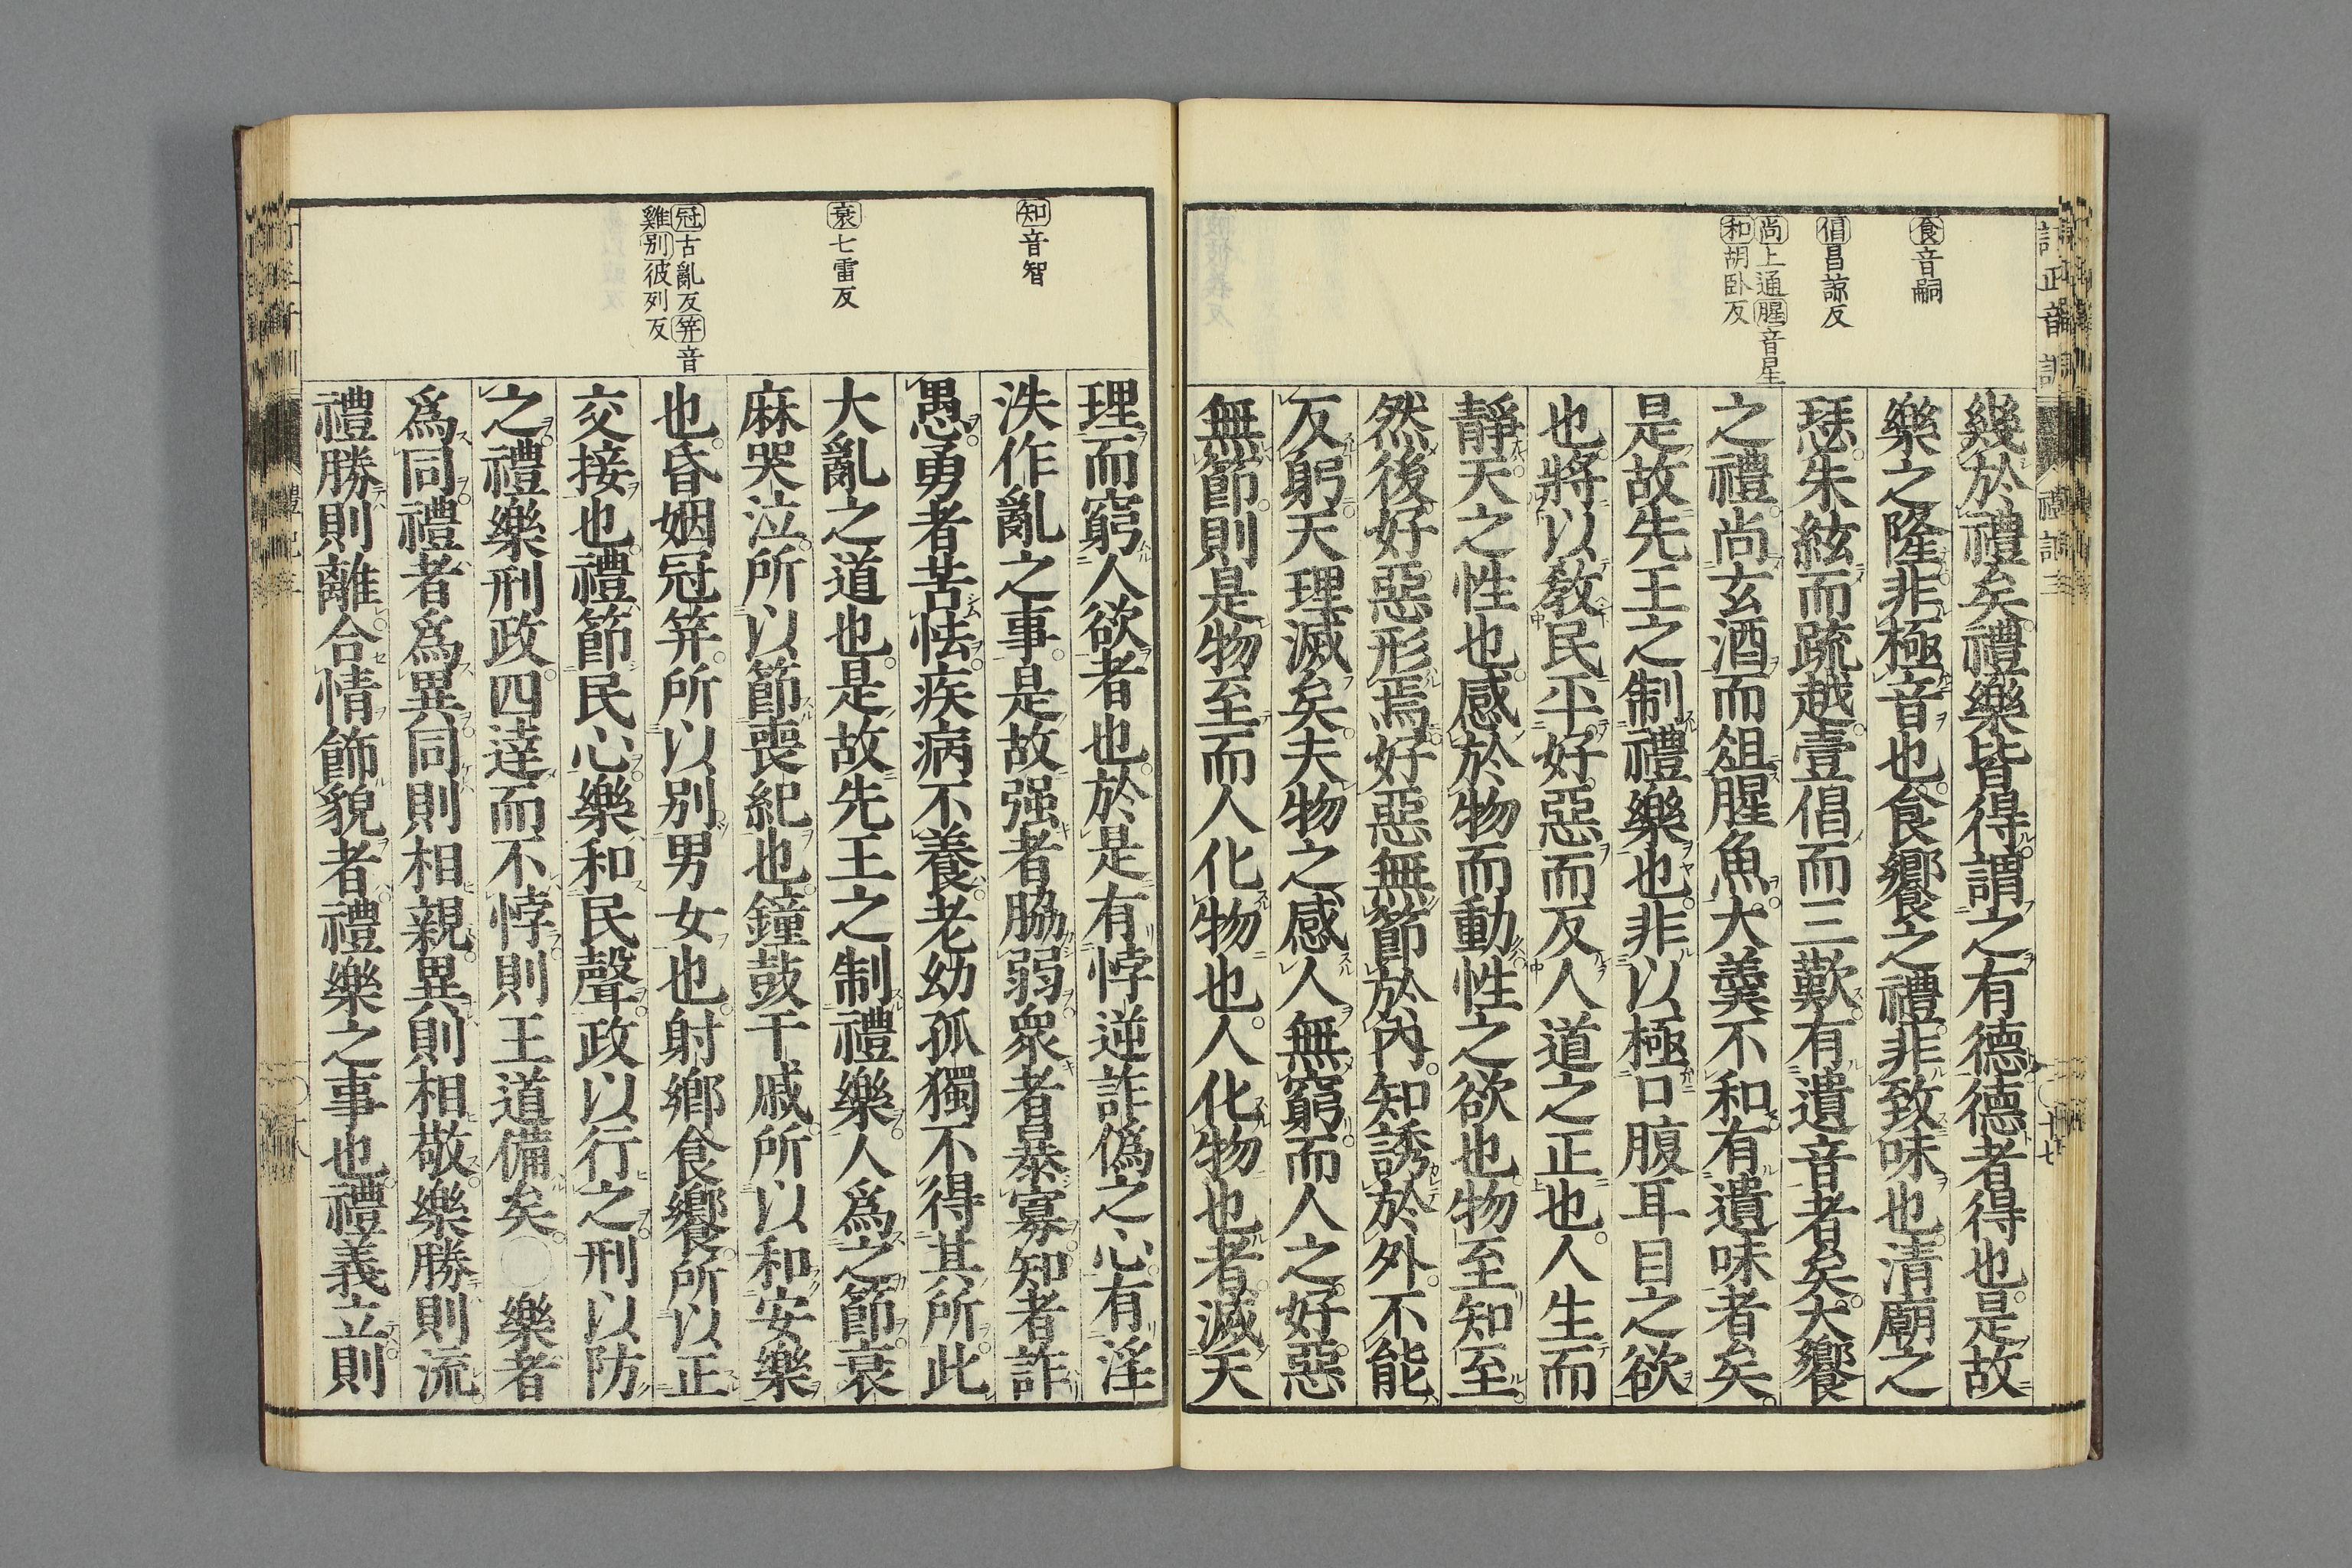 食音嗣
倡昌諒反
尚上通腥音星
和胡卧反
幾於禮矣禮樂皆得謂之有德德者得也是故
樂之隆非極音也食饗之禮非致味也清廟之
瑟朱絃而疏越壹倡而三歎有遺音者矣大饗
之禮尚玄酒而俎腥魚大羹不和有遺味者矣
是故先王之制禮樂也非以極口腹耳目之欲
也將以敎民平好惡而反人道之正也人生而
靜天之性也感於物而動性之欲也物至知至
然後好惡形焉好惡無節於內知誘於外不能
反躬天理滅矣夫物之感人無窮而人之好惡
無節則是物至而人化物也人化物也者滅天
知音智
衰七雷反
冠古亂反笄音
雞別彼列反
理而窮人欲者也於是有悖逆詐僞之心有淫
泆作亂之事是故强者脇弱衆者暴寡知者詐
愚勇者苦怯疾病不養老幼孤獨不得其所此
大亂之道也是故先王之制禮樂人爲之節衰
麻哭泣所以節喪紀也鐘鼓干戚所以和安樂
也昏姻冠笄所以別男女也射鄉食饗所以正
交接也禮節民心樂和民聲政以行之刑以防
之禮樂刑政四達而不悖則王道備矣○樂者
爲同禮者爲異同則相親異則相敬樂勝則流
禮勝則離合情飾貌者禮樂之事也禮義立則